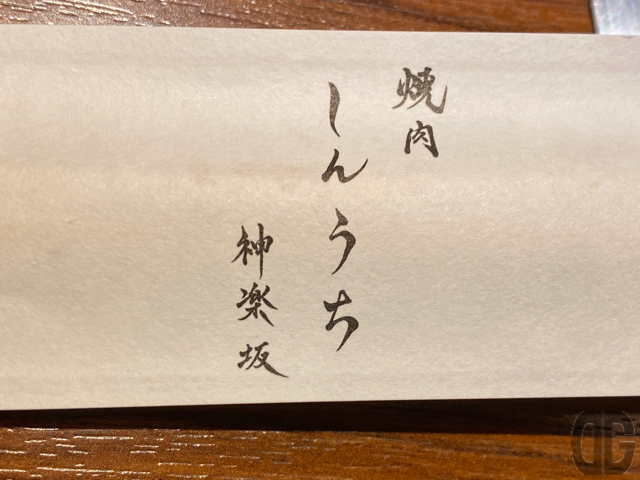 焼肉
しんうち
神楽坂